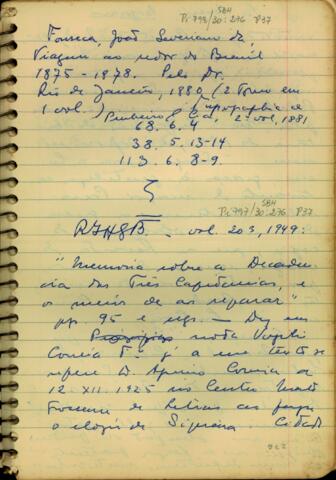 SBH
Pi 798/30:276 P37
Fonseca, João Severiano da,
Viagem ao redor do Brasil
1875 - 1878. Pelo Dr.
Rio de Janeiro, 1880 (2 Tomo em
1 vol.) Typographia de
Pinheiro & Cia, 2º vol, 1881
68. 6. 4
38. 5. 13-14
113. 6. 8-9.
SBH
Pi 797/30:276 P37
RIHGB - vol. 203, 1949:
"Memoria sobre a Decaden
cia das Três Capitanias, e
os meios de as reparar"
pp. 95 e segs. - Diz em
nota Virgilio
Correia Fº já a
refere D. Aquino Correia a
12. XII. 1925 no Centro Matto
Grossense de Letras ao fazer
o elogio de Siqueira.